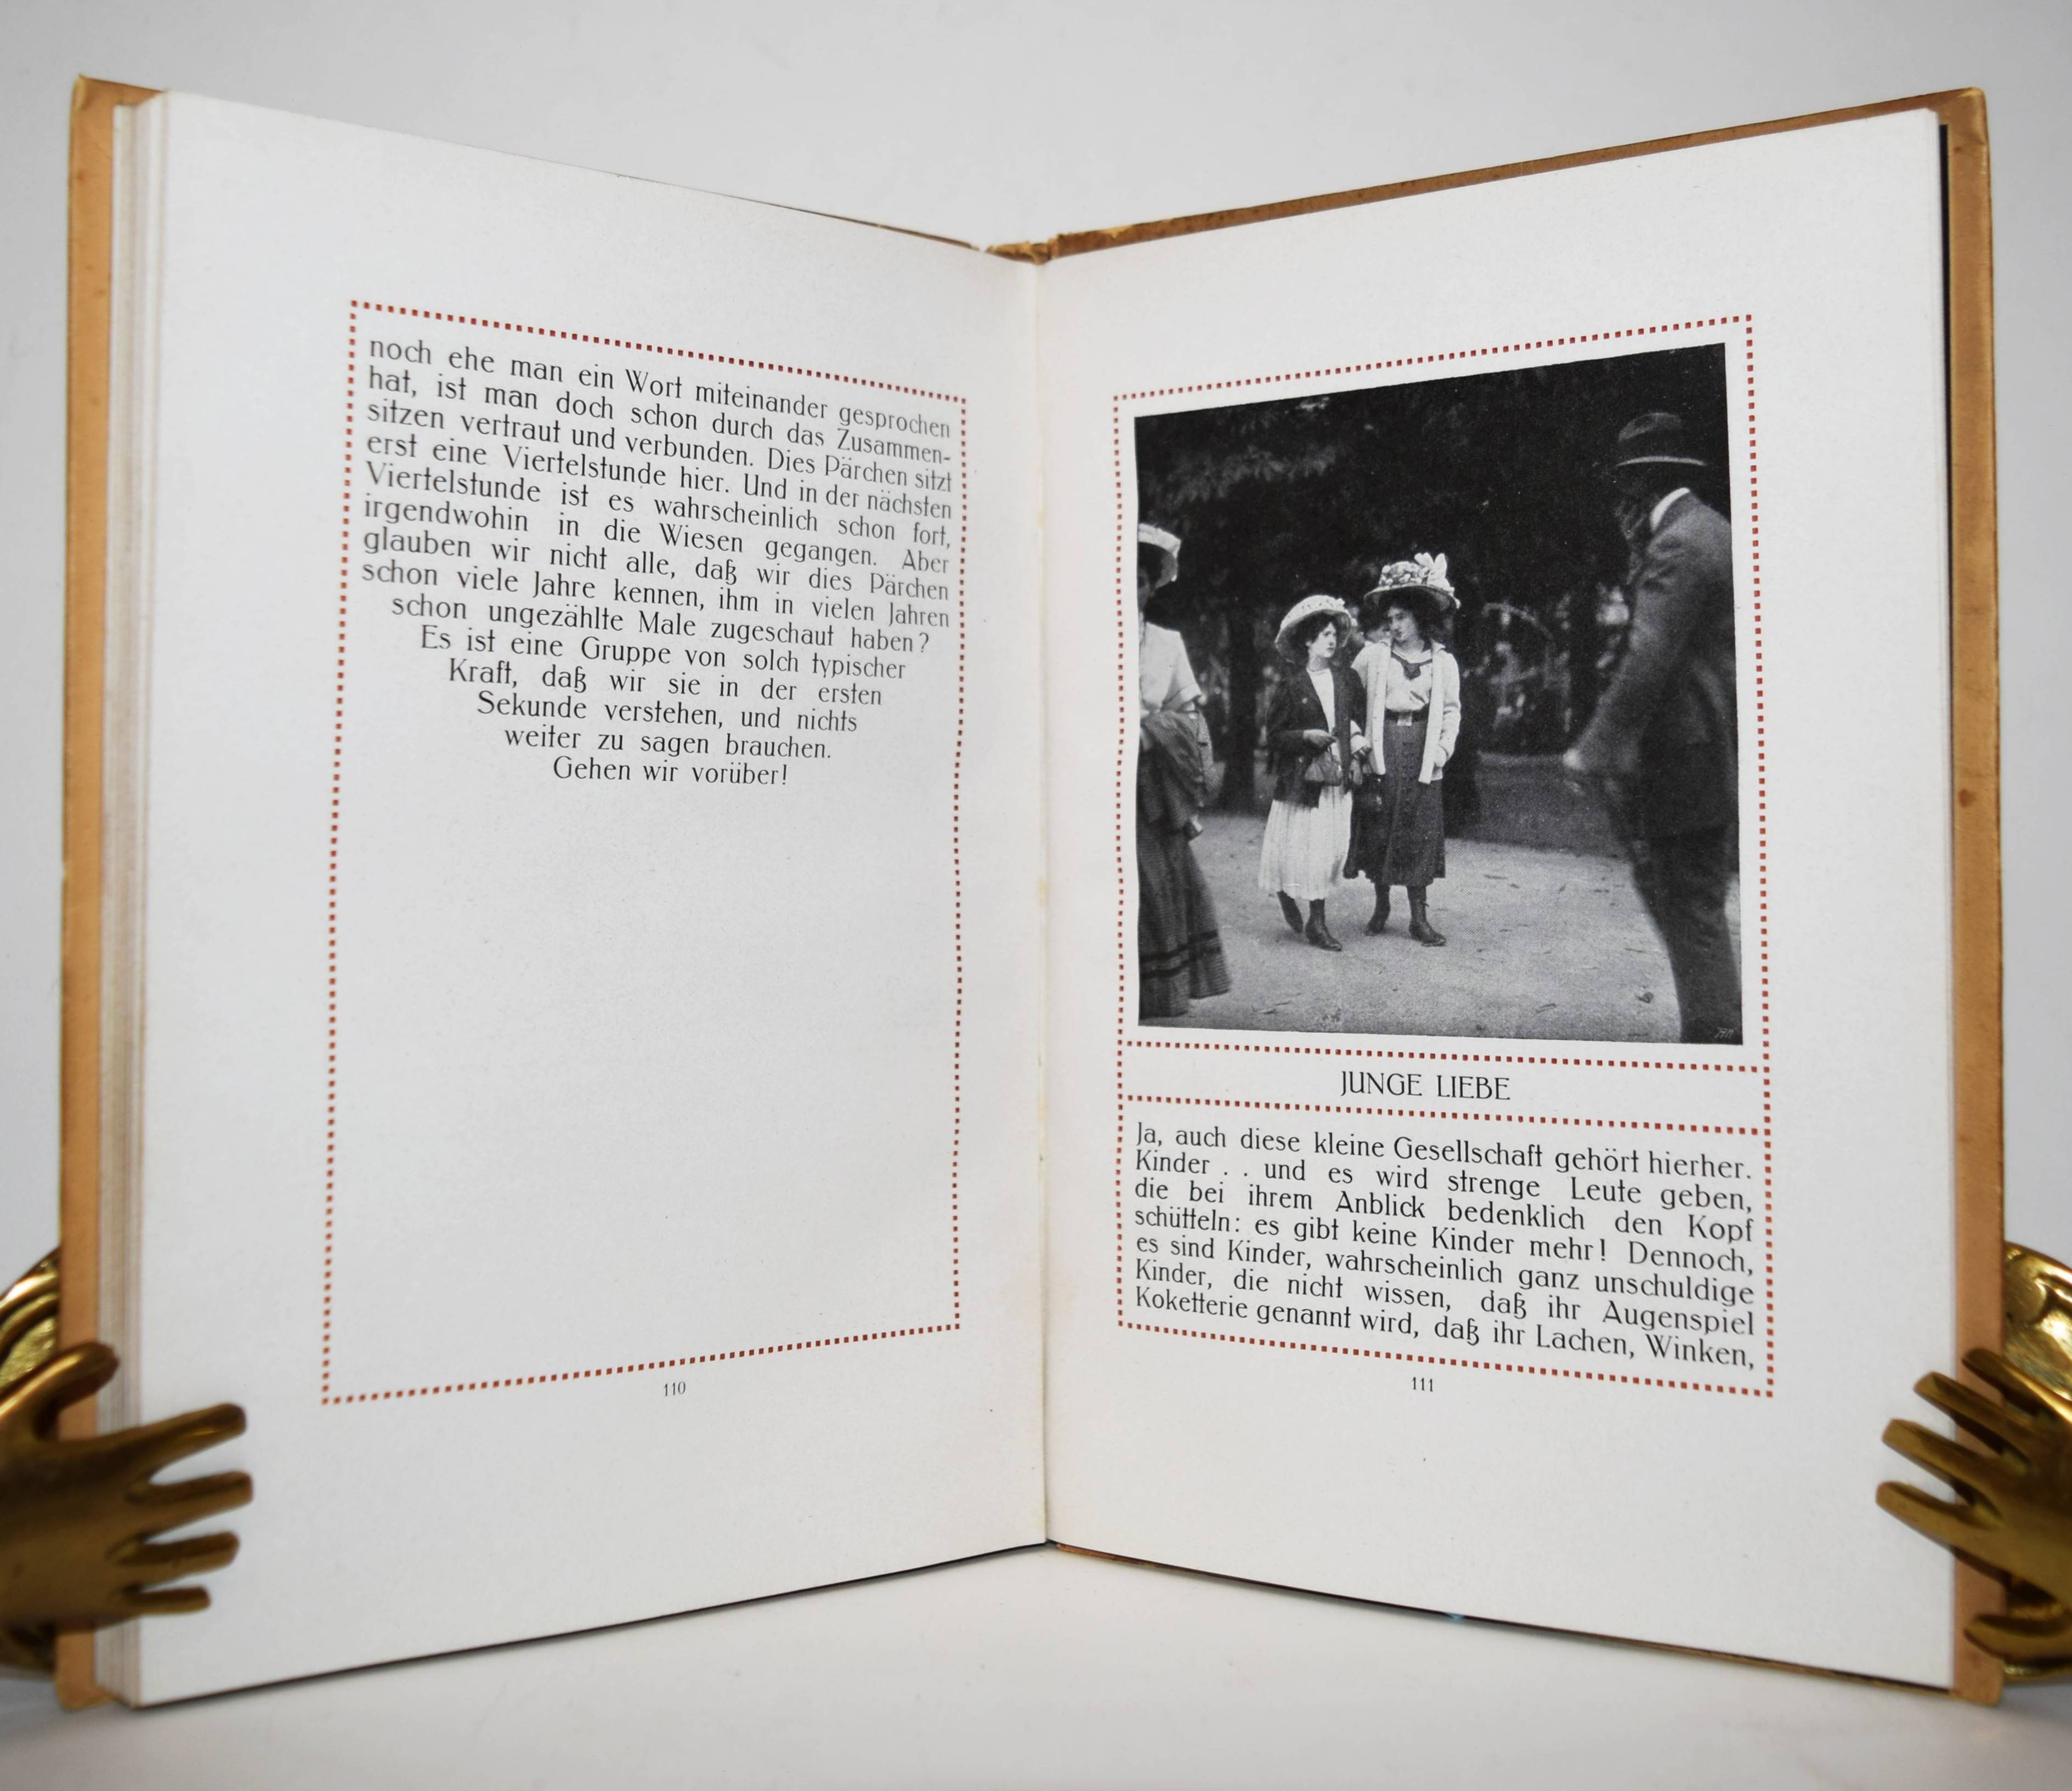 noch ehe man ein Wort miteinander gesprochen
hat, ist man doch schon durch das Zusammen-
sitzen vertraut und verbunden. Dies Pärchen sitzt
erst eine Viertelstunde hier. Und in der nächsten
Viertelstunde ist es wahrscheinlich schon fort,
irgendwohin in die Wiesen gegangen. Aber
glauben wir nicht alle, daß wir dies Pärchen
schon viele Jahre kennen, ihm in vielen Jahren
schon ungezählte Male zugeschaut haben?
Es ist eine Gruppe von solch typischer
Kraft, daß wir sie in der ersten
Sekunde verstehen, und nichts
weiter zu sagen brauchen.
Gehen wir vorüber!
110
JUNGE LIEBE
Ja, auch diese kleine Gesellschaft gehört hierher.
Kinder . . und es wird strenge Leute geben,
die bei ihrem Anblick bedenklich den Kopf
schütteln: es gibt keine Kinder mehr! Dennoch,
es sind Kinder, wahrscheinlich ganz unschuldige
Kinder, die nicht wissen, daß ihr Augenspiel
Koketterie genannt wird, daß ihr Lachen, Winken,
111